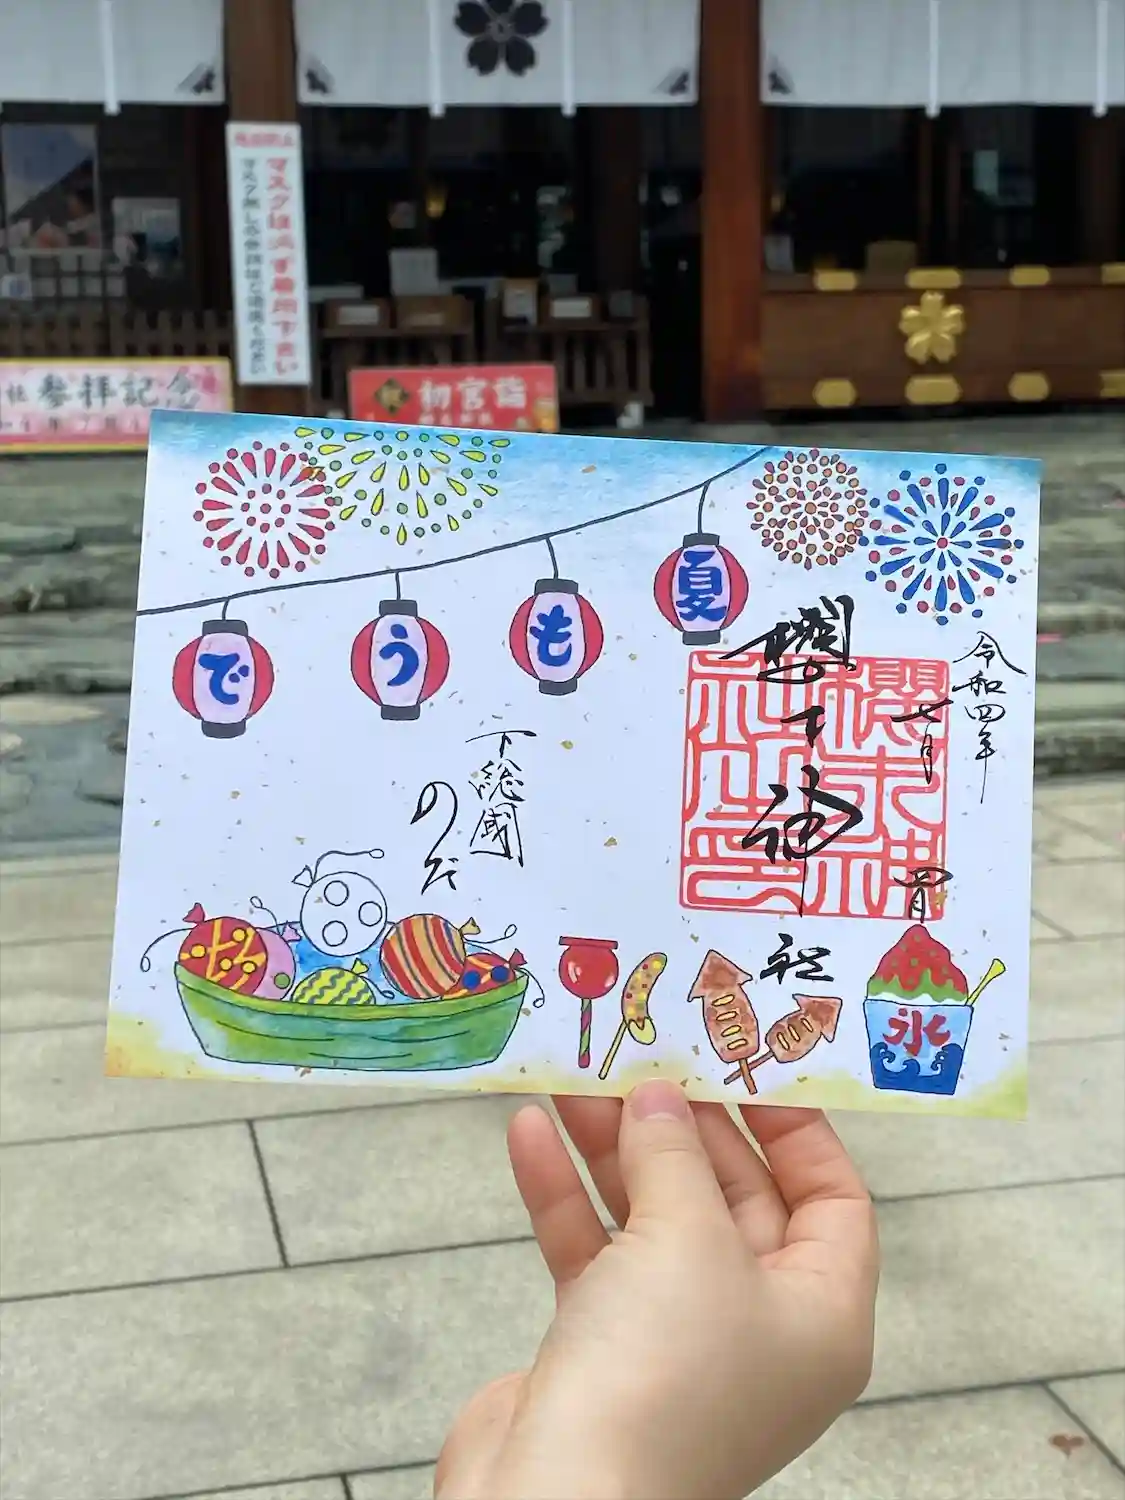 マスク必ず着用下さい
参拝記念
初宮詣
夏
も
う
で
令和四年
七月
櫻木神社
櫻木神社之印
下総國
のだ
氷